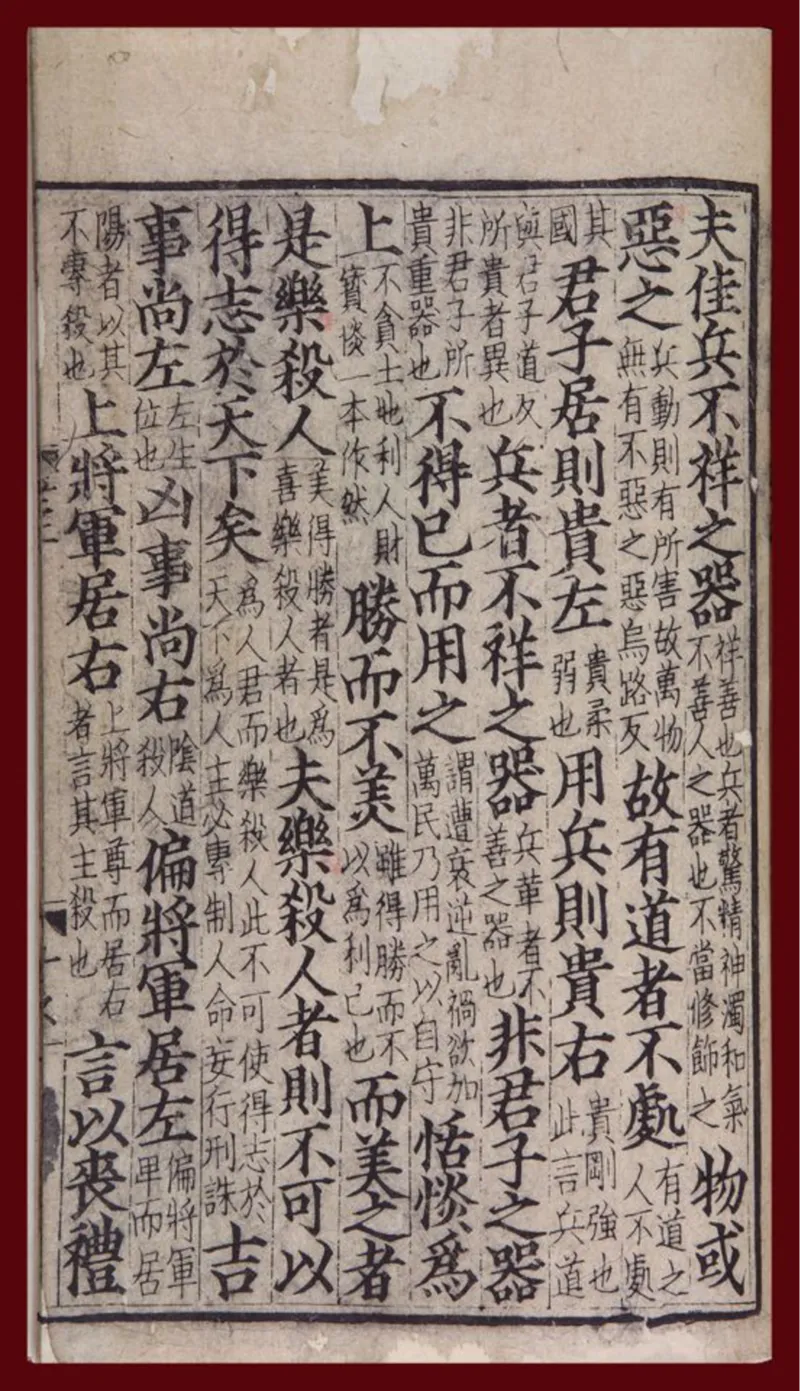 夫佳兵不祥之器祥善也兵者驚精神濁和氣不善人之器也不當修飾之物或
惡之兵動則有所害故萬物無有不惡之惡烏路反故有道者不處有道之人不處
其國君子居則貴左貴柔弱也用兵則貴右貴剛強也此言兵道
與君子道反所貴者異也兵者不祥之器兵革者不善之器也非君子之器
非君子所貴重器也不得已而用之謂遭衰逆亂禍欲加萬民乃用之以自守恬惔為
上不貪土地利人財寳惔一本作然勝而不美雖得勝而不以為利己也而美之者
是樂殺人美得勝者是為喜樂殺人者也夫樂殺人者則不可以
得志於天下矣為人君而樂殺人此不可使得志於天下為人主必專制人命妄行刑誅吉
事尚左左生位也凶事尚右陰道殺人偏將軍居左偏將軍卑而居
陽者以其不專殺也上將軍居右上將軍尊而居右者言其主殺也言以喪禮